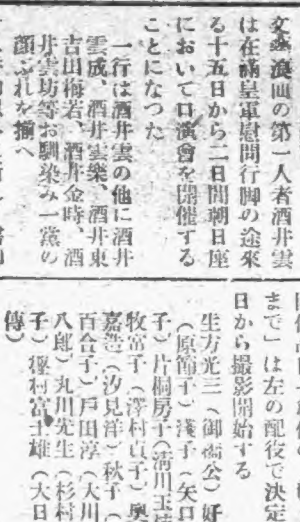 文藝浪曲の第一人者酒井雲
は在滿皇軍慰問行脚の途來
る十五日から二日間朝日座
において口演會を開催する
ことになつた
一行は酒井雲の他に酒井
雲成、酒井雲樂、酒井東
吉田梅若、酒井金時、酒
井雲坊等お馴染み一黨の
顏ぶれを揃へ
まで」は左の配役で決定
日から撮影開始する
生方光三（御橋公）好
（原節子）淺子（矢口
子）片桐房子（清川玉枝
牧富子（澤村貞子）奧
嘉造（汐見洋）秋子（
百合子）戸田淳（大川
八郎）丸川先生（杉村
子）榎村富士雄（大日
傳）